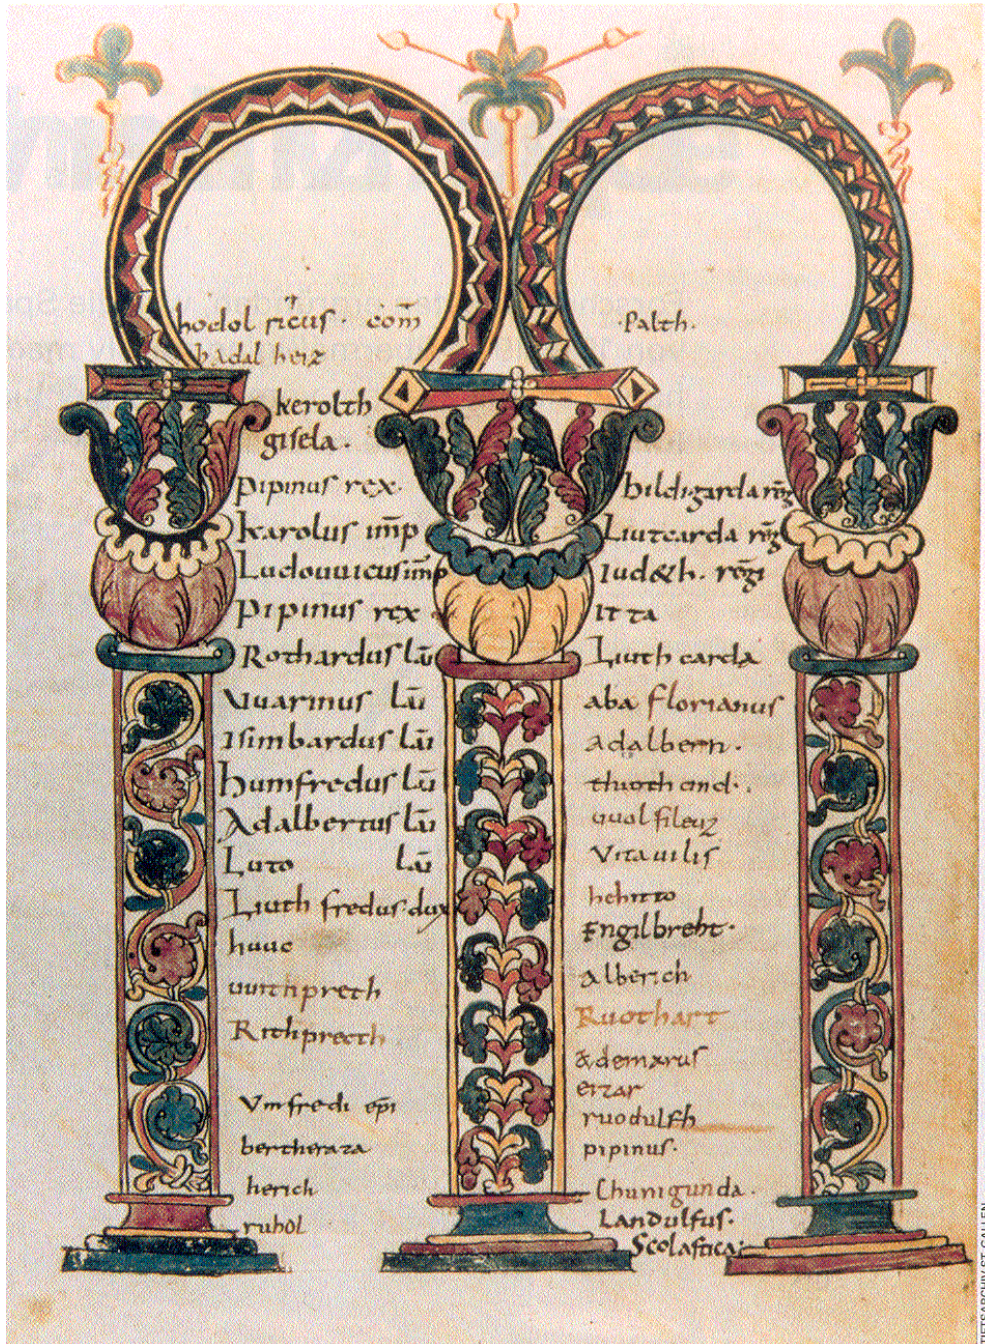 hodol ricus · com̄
hadal herz
kerolth
gisela ·
pipinus rex ·
karolus im̄p
Ludouuicus im̄p
pipinus rex
Rothardus laī
Vuarinus laī
Isimbardus laī
humfredus laī
Adalbertus laī
Luto laī
Liuth fredus · dux
huuc
Rithprecth
Vmfredi ep̄i
bertherata
herich
ruhol
· palth ·
hildi garda reḡ
Liutcarda reḡ
Iud&h · reḡi
It ta
Liuth carda
aba florianus
Adalbern ·
Vitauilis
hehitto
Engilbreht ·
Alberich
Ruothart
Ademarus
erzar
ruodulfh
pipinus ·
Chunigunda ·
Landulfus ·
Scolastica
STIFTSARCHIV ST. GALLEN